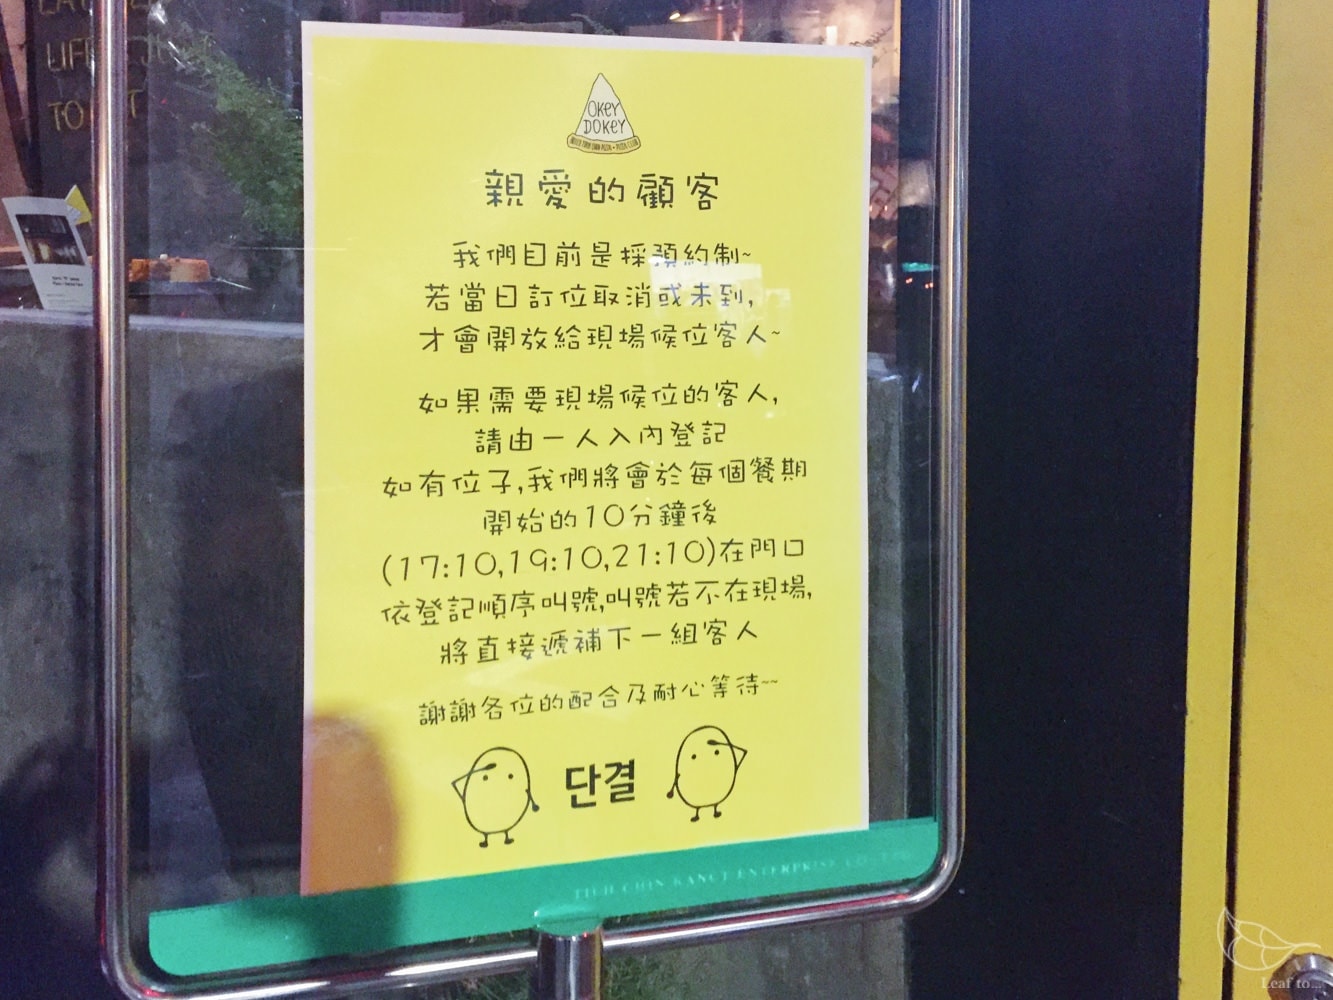 OKEY
DOKEY
親愛的顧客
我們目前是採預約制~
若當日訂位取消或未到,
才會開放給現場候位客人~
如果需要現場候位的客人,
請由一人入內登記
如有位子,我們將會於每個餐期
開始的10分鐘後
(17:10,19:10,21:10)在門口
依登記順序叫號,叫號若不在現場,
將直接遞補下一組客人
謝謝各位的配合及耐心等待~~
단결
ENTERPRISE CO., LTD
LIFE
TO
Leaf to...